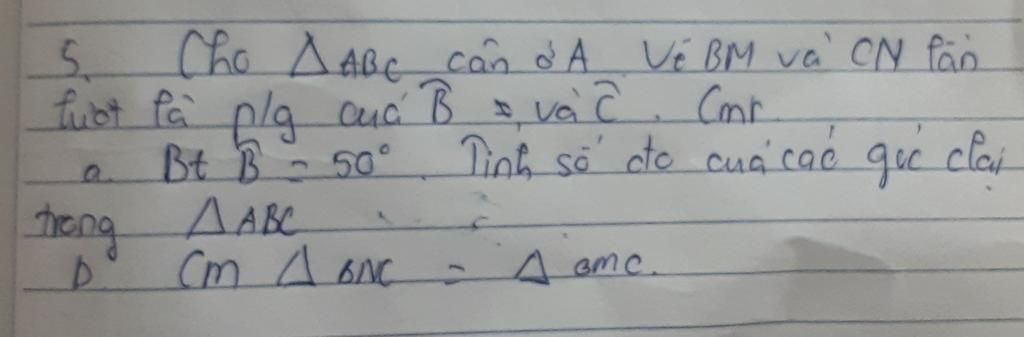 5. Cho △ABC cân ở A Vẽ BM và CN lần
lượt là p/g của B̂ và Ĉ. Cmr
a. Bt B̂ = 50°. Tính số đo của các góc còn lại
trong △ABC
b Cm △BNC = △BMC.